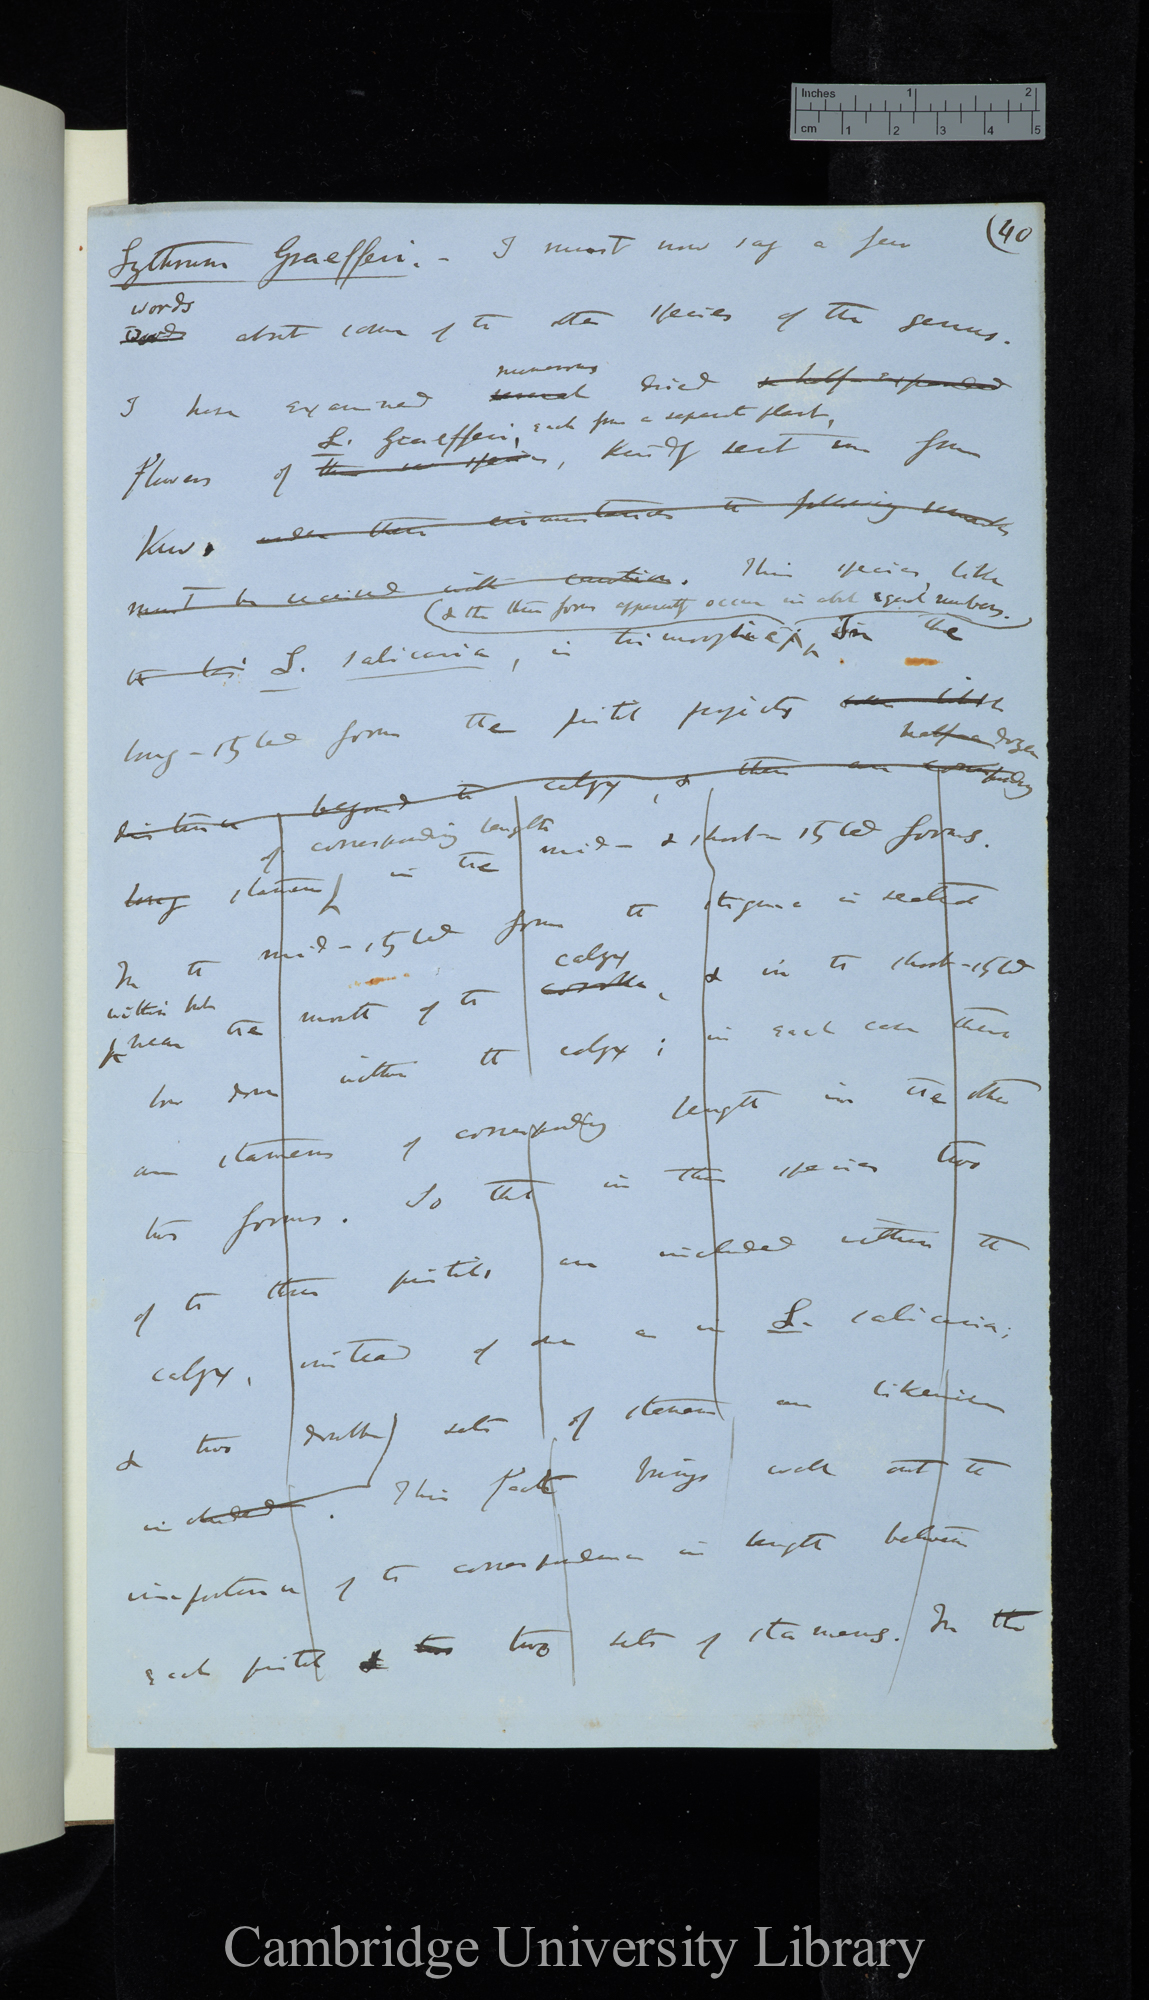 Inches 1 2
cm 1 2 3 4 5
(40
Lythrum Graefferi. - I must now say a few
words
words about some of the other species of the genus.
numerous
I have examined several dried & half-expanded
L. Graefferi, each from a separate plant,
flowers of this species, kindly sent me from
Kew. under these circumstances the following remarks
must be received with caution. This species, like
(& the three forms apparently occur in about equal numbers.
L. salicaria, is trimorphic, In the
long-styled form the pistil projects some little
half-a dozen
distance beyond the calyx, & there are corresponding
of corresponding length
long stamens in the mid- & short-styled forms.
In the mid-styled form the stigma is seated
within but calyx
near the mouth of the corolla, & in the short-styled
low down within the calyx; in each case there
are stamens of corresponding length in the other
two forms. So that in this species two
of the three pistils are included within the
calyx, instead of one as in L. salicaria;
& two double sets of stamens are likewise
included. This fact brings well out the
importance of the correspondence in length between
each pistil & the two sets of stamens. In the
Cambridge University Library